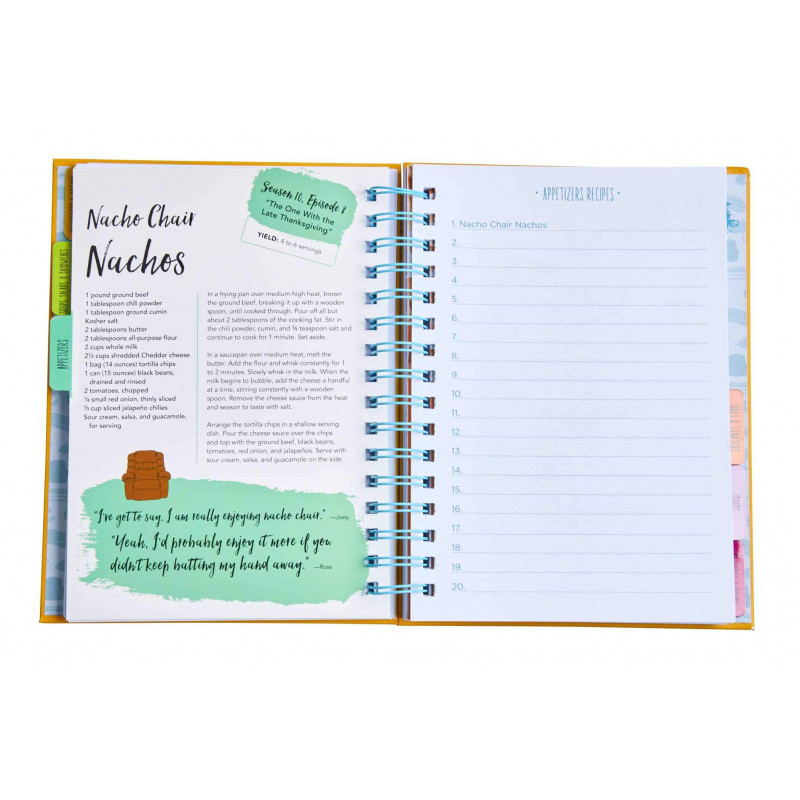 Nacho Chair
Nachos
Season 10, Episode 8
"The One With the
Late Thanksgiving"
YIELD: 4 to 6 servings
1 pound ground beef
1 tablespoon chili powder
1 tablespoon ground cumin
Kosher salt
2 tablespoons butter
2 tablespoons all-purpose flour
2 cups whole milk
2½ cups shredded Cheddar cheese
1 bag (14 ounces) tortilla chips
1 can (15 ounces) black beans,
drained and rinsed
2 tomatoes, chopped
¼ small red onion, thinly sliced
⅓ cup sliced jalapeño chilies
Sour cream, salsa, and guacamole,
for serving
In a frying pan over medium-high heat, brown
the ground beef, breaking it up with a wooden
spoon, until cooked through. Pour off all but
about 2 tablespoons of the cooking fat. Stir in
the chili powder, cumin, and ¾ teaspoon salt and
continue to cook for 1 minute. Set aside.
In a saucepan over medium heat, melt the
butter. Add the flour and whisk constantly for 1
to 2 minutes. Slowly whisk in the milk. When the
milk begins to bubble, add the cheese a handful
at a time, stirring constantly with a wooden
spoon. Remove the cheese sauce from the heat
and season to taste with salt.
Arrange the tortilla chips in a shallow serving
dish. Pour the cheese sauce over the chips
and top with the ground beef, black beans,
tomatoes, red onion, and jalapeños. Serve with
sour cream, salsa, and guacamole on the side.
"I've got to say, I am really enjoying nacho chair." —Joey
"Yeah, I'd probably enjoy it more if you
didn't keep batting my hand away." —Ross
SOUPS, SALADS & SANDWICHES
APPETIZERS
• APPETIZERS RECIPES •
1. Nacho Chair Nachos
2.
3.
4.
5.
6.
7.
8.
9.
10.
11.
12.
13.
14.
15.
16.
17.
18.
19.
20.